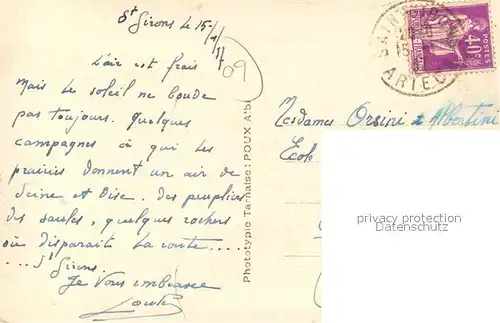 St Girons le 15-
L'air est frais
Mais le soleil ne boude
pas toujours. Quelques
campagnes à qui les
prairies donnent un air de
Seine et Oise. Des peupliers
des saules, quelques rochers
où disparait la route....
....St Girons.
Je vous embrasse
Phototypie Tarnaise: POUX Albi
40c
POSTES
SAINT
ARIEG
Mesdames Orsini & Albertine
Ecole
privacy protection
Datenschutz